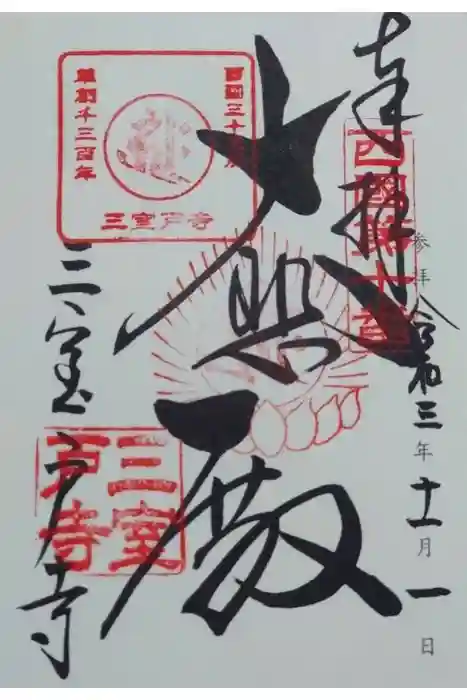 奉拝
西國第十番
参拝 令和三年十一月一日
大悲殿
西国三十三所
草創千三百年
三室戸寺
三室戸寺
三室戸寺